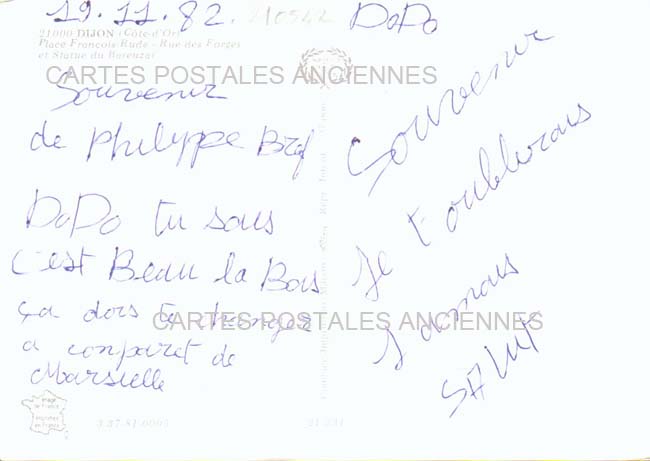 19.11.82. 210542 DoDo
21000 DIJON (Côte-d'Or)
Place François-Rude - Rue des Forges
et Statue du Bareuzai
CARTES POSTALES ANCIENNES
Souvenir
de Philyppe Bref
DoDo tu sais
c'est Beau la Bas
ça dois te changer
a comparet de
Marsielle
Souvenir
Je t'oublirais
Jamais
SALUT
CARTES POSTALES ANCIENNES
image
de France
3.37.81.0005
21.231